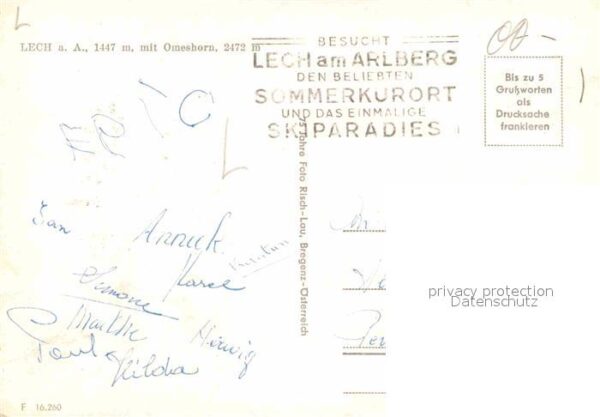 LECH a. A., 1447 m, mit Omeshorn, 2472 m
BESUCHT
LECH am ARLBERG
DEN BELIEBTEN
SOMMERKURORT
UND DAS EINMALIGE
SKIPARADIES
Bis zu 5
Grußworten
als
Drucksache
frankieren
75 Jahre Foto Risch-Lau, Bregenz-Österreich
Jan Annick
Simone Karel
Marthe Herwig
Paul Hilda
privacy protection
Datenschutz
F 16.260